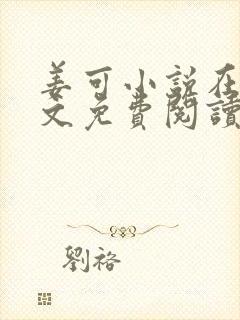 姜可小説在
文免費閱讀
劉裕